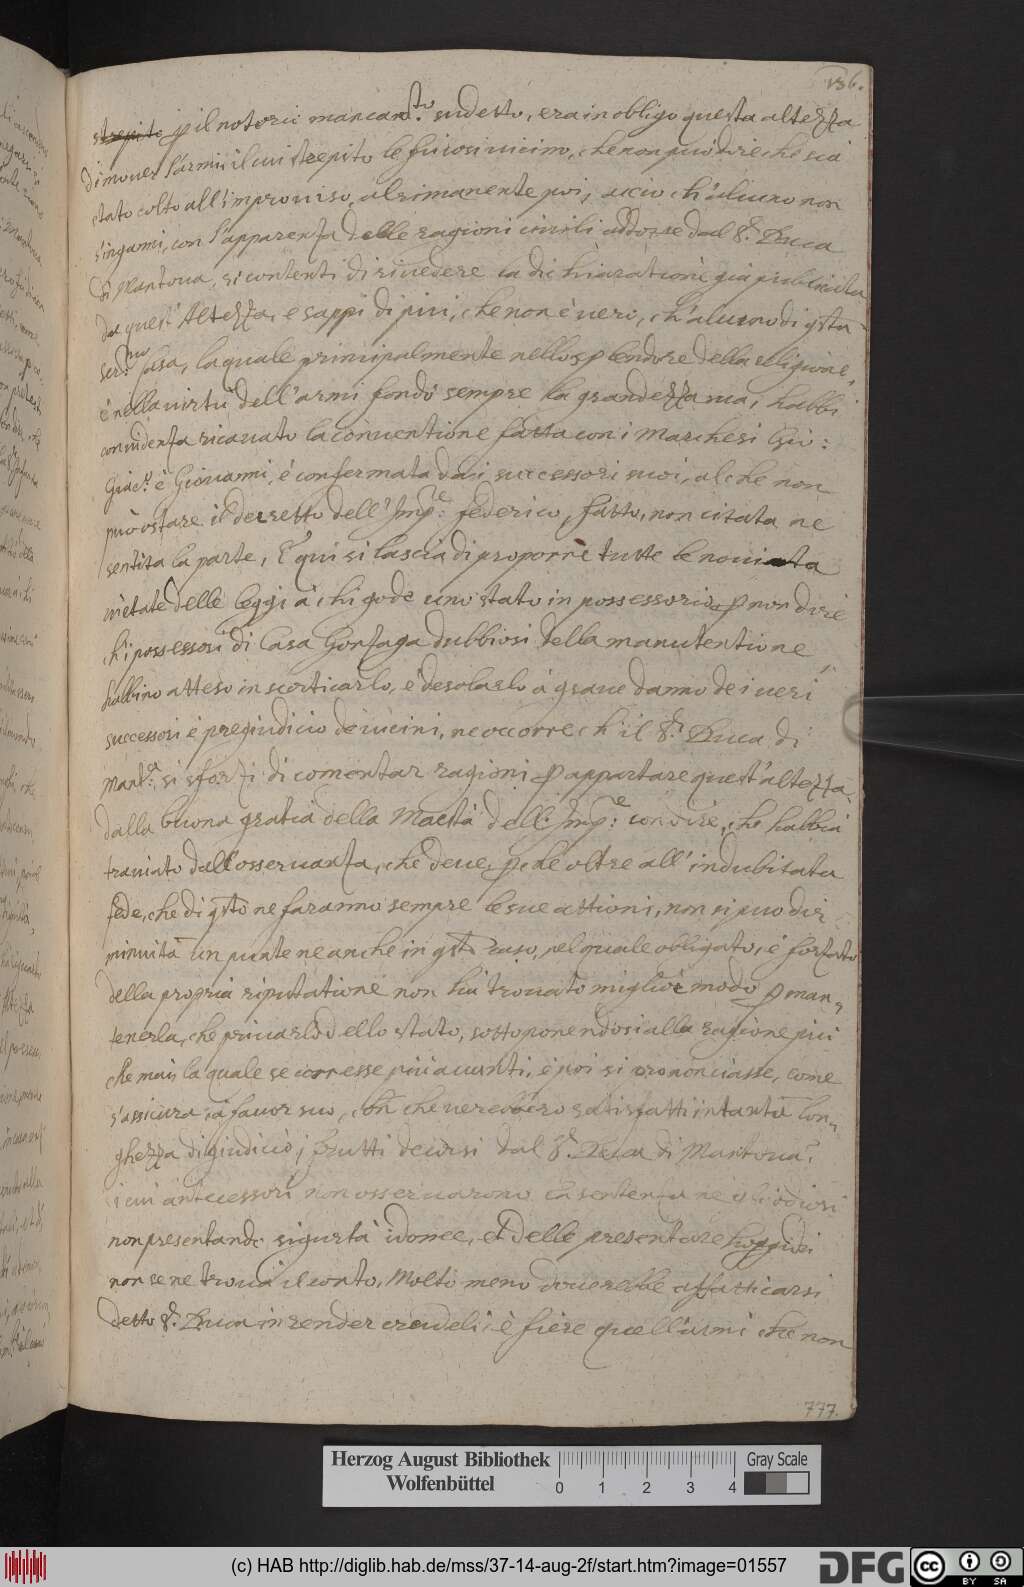 136.
strepito p il notorii mancam.to sudetto, era in obligo questa altezza
di mover l'armi, il cui strepito le fu cosi vicino, che non puo dire che sia
stato colto all'improviso, al rimanente poi, accio ch'alcuno non
s'ingami, con l'apparenza delle ragioni civili addotte dal S.r Duca
di Mantova, si contenti di rivedere la dichiaratione già publicata
da quest'Altezza, e sappi di piu, che non è vero, ch'alcuno di q̃sta
Ser.ma Casa, la quale principalmente nello splendore della religione,
è nella virtù dell'armi fondò sempre la grandezza sua, habbi
con videnza ricavato la conventione fatta con i Marchesi Gio:
Giac.o è Giovanni, è confermata dai successori suoi, al che non
può ostare il decretto dell'Imp.re: federico, fatto, non citata ne
sentita la parte, E qui si lascia di proporre tutte le
delle leggi à chi gode uno stato in possessorio, p non dire
ch'i possessori di Casa Gonzaga dubbiosi della manutentione,
habbino atteso in scorticarlo, e desolarlo à grave danno dei veri
successori è pregiudicio de vicini, ne occorre ch'il S.r Duca di
Mant.a si sforzi di comentar ragioni p appartare quest'altezza
dalla buona gratia della Maestà dell'Imp.re: con dire, che habbia
traviato dall'osservanza, che deve, p che oltre all'indubitata
fede, che di q̃sto ne faranno sempre le sue attioni, non si puo dir
minuita un punte ne anche in q̃sto caso, nel quale obligato, è forzato
della propria riputatione non hà trovato miglior modo p man-
tenerla, che privarlo dello stato, sottoponendosi alla ragione piu
che mai, la quale se corresse piu avanti, è poi si prononciasse, come
s'assicura, à favor suo, che verebbero satisfatti in tanta lon-
ghezza di giudicio, i frutti decorsi dal S.r Duca di Mantova,
i cui antecessori non osservarono la sentenza ne
non presentando sigurtà idonee, et delle presentate hoggidi
non se ne trova il conto, Molto meno doverebbe affatticarsi
detto S.r Duca in render crudeli, è fiere quell'armi che non
777.
Herzog August Bibliothek
Wolfenbüttel
0 1 2 3 4
Gray Scale
(c) HAB http://diglib.hab.de/mss/37-14-aug-2f/start.htm?image=01557
DFG
CC BY SA